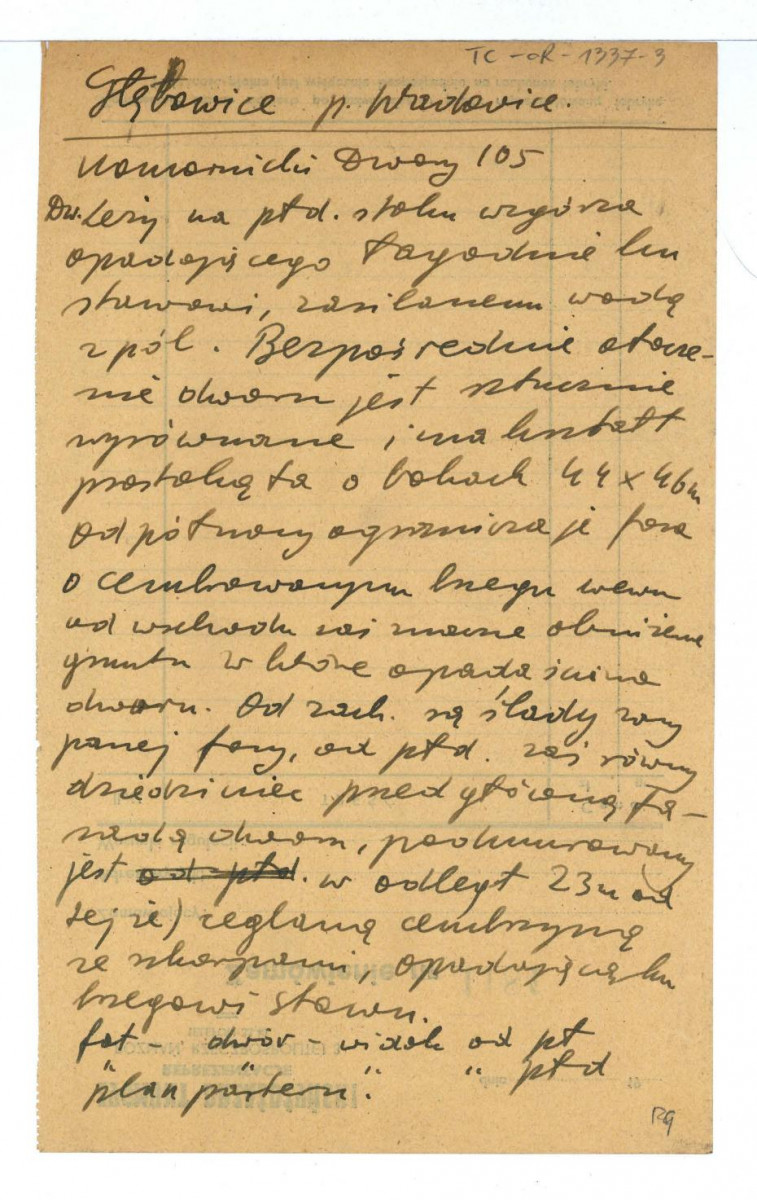 TC-OR-1337-3
Głębowice p. Wadowice.
Komornicki Dwory 105
Dw. Leży na płd. stoku wzgórza
opadającego łagodnie ku
stawowi, zasilanemu wodą
z pól. Bezpośrednie otocze-
nie dworu jest sztucznie
wyrównane i ma kształt
prostokąta o bokach 44 x 46 m
od północy ogranicza je fosa
o cembrowanym brzegu wewn
od wschodu zaś znaczne obniżenie
gruntu w które opada ściana
dworu. Od zach. są ślady zasy
panej fosy, od płd. zaś równy
dziedziniec przed główną fa-
sadą dworu, podmurowany
jest od płd. w odległ 23 m od
tejże) ceglaną cembrzyną
ze szkarpami, opadającą ku
brzegowi stawu.
fot - dwór - widok od pł
" " " " płd
plan parteru.